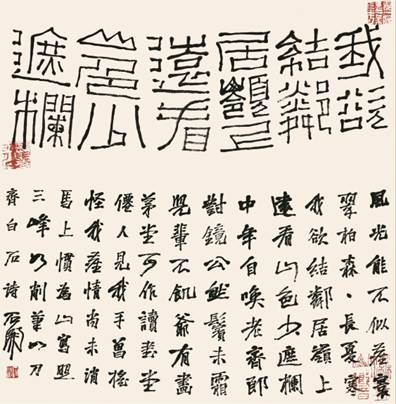 我欲
結鄰
居嶺上
遠看
山色少
遮欄
風光能不似塵寰
翠柏森々長夏寒
我欲結鄰居嶺上
遠看山色少遮欄
中年自喚老齊郎
對鏡公然鬢未霜
兒輩不飢爺有畫
茅堂可作讀書堂
僊人見我手曾搖
怪我塵情尚未消
馬上慣為山寫照
三峰如削筆如刀
齊白石詩 石開